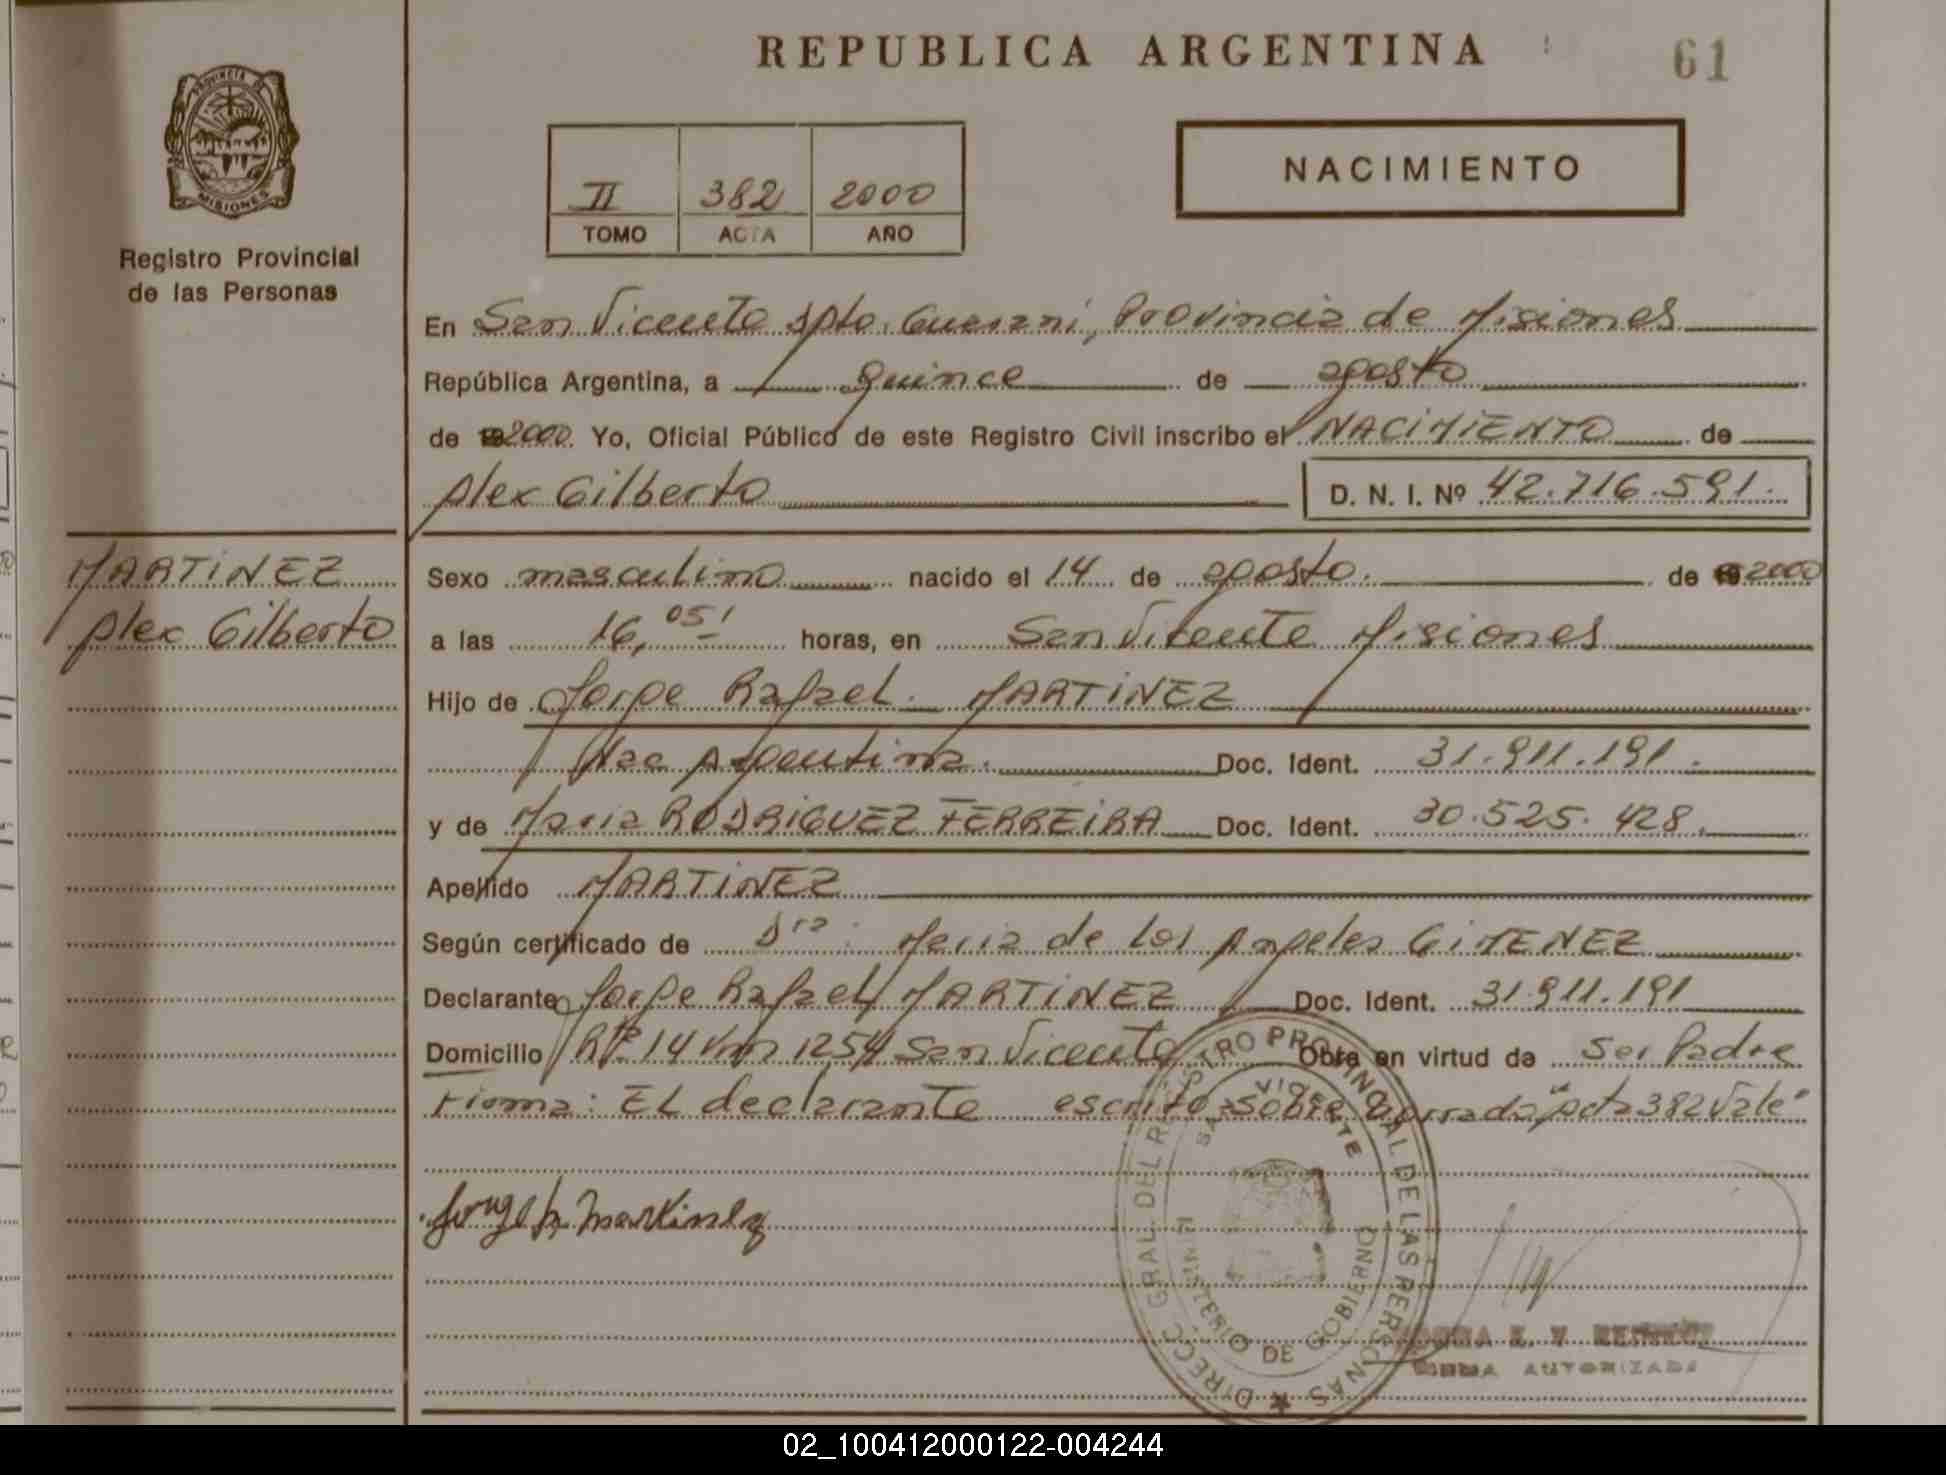 REPUBLICA ARGENTINA
61
PROVINCIA DE
MISIONES
Registro Provincial
de las Personas
II 382 2000
TOMO ACTA AÑO
NACIMIENTO
En San Vicente Dpto. Guarani, Provincia de Misiones
República Argentina, a quince de agosto
de 2000. Yo, Oficial Público de este Registro Civil inscribo el NACIMIENTO de
Alex Gilberto D. N. I. Nº 42.716.591.
MARTINEZ
Alex Gilberto
Sexo masculino nacido el 14 de agosto. de 2000
a las 16,05' horas, en San Vicente Misiones
Hijo de Jorge Rafael. MARTINEZ
Nac Argentina. Doc. Ident. 31.911.191.
y de Maria RODRIGUEZ FERREIRA Doc. Ident. 30.525.428.
Apellido MARTINEZ
Según certificado de Dra: Maria de los Angeles GIMENEZ
Declarante Jorge Rafael MARTINEZ Doc. Ident. 31.911.191
Domicilio Rta 14 Km 1254 San Vicente Obra en virtud de Ser Padre
Firma: El declarante escrito sobre borrado "acta 382 Vale"
Jorge R. Martinez
DIRECC. GRAL. DEL REGISTRO PROVINCIAL DE LAS PERSONAS
SAN VICENTE
MINISTERIO DE GOBIERNO
FIRMA AUTORIZADA
02_100412000122-004244